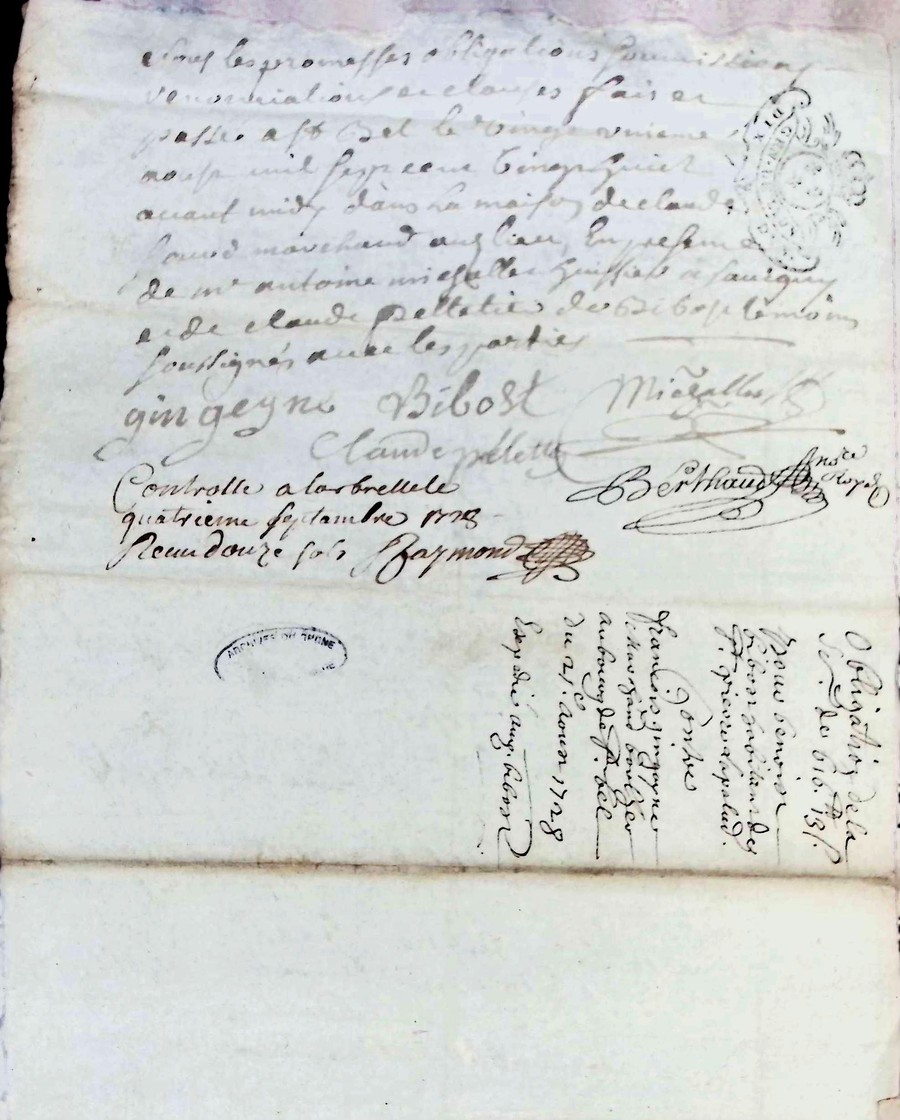 sous les promesses obligations soumissions
renonciations et clauses fait et
passé a St Bel le vingt unieme
aoust mil sept cent vingt huict
avant midy dans la maison de claude
marchand audt lieu, En presence
de mr antoine michallet huissier a savigny
et de claude pelletier de Bibost temoins
soussignés avec les parties
gingeyne Bibost Michallet
Claude pelletie
Berthaud nore Royal
Controlle a larbrelle le
quatrieme septambre 1728
Receu douze sols Raymond
ARCHIVES DU RHONE
DIX
Obligation de la
de 616. 13s.
Pour benoist
bibost habitant de
st. pierre lapalud.
Contre
francois gingeyne
marchand boulager
au bourg de St. bel
du 21e. aoust 1728
Expedié aud. bibost